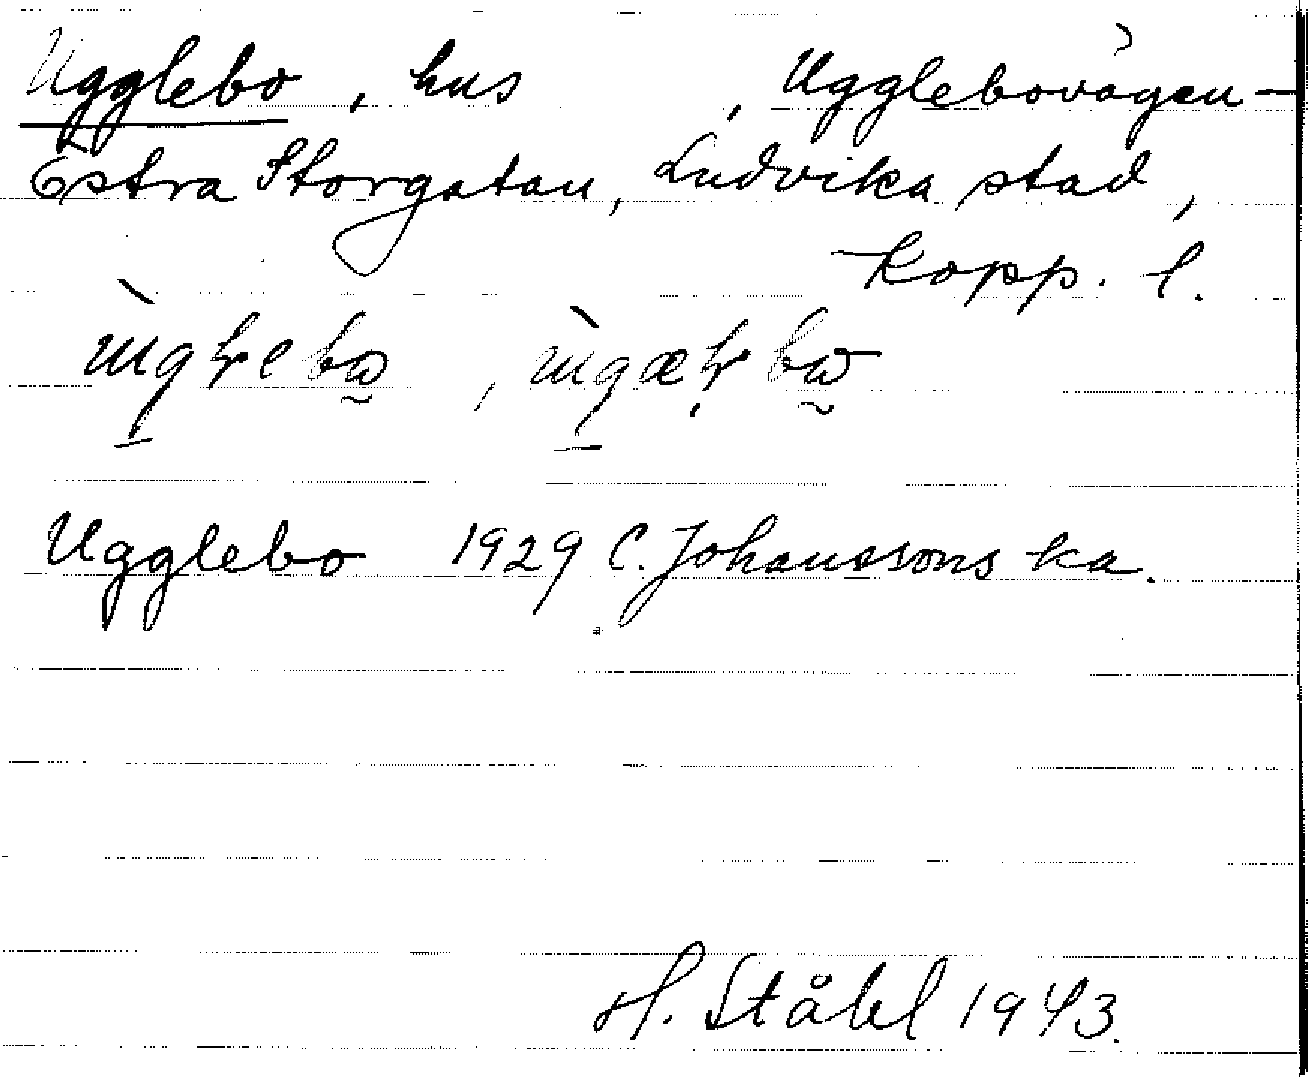 Ugglebo, hus , Ugglebovägen —
Östra Storgatan, Ludvika stad,
Kopp. l.
Ugglebo 1929 C. Johanssons ka.
H. Ståhl 1943.